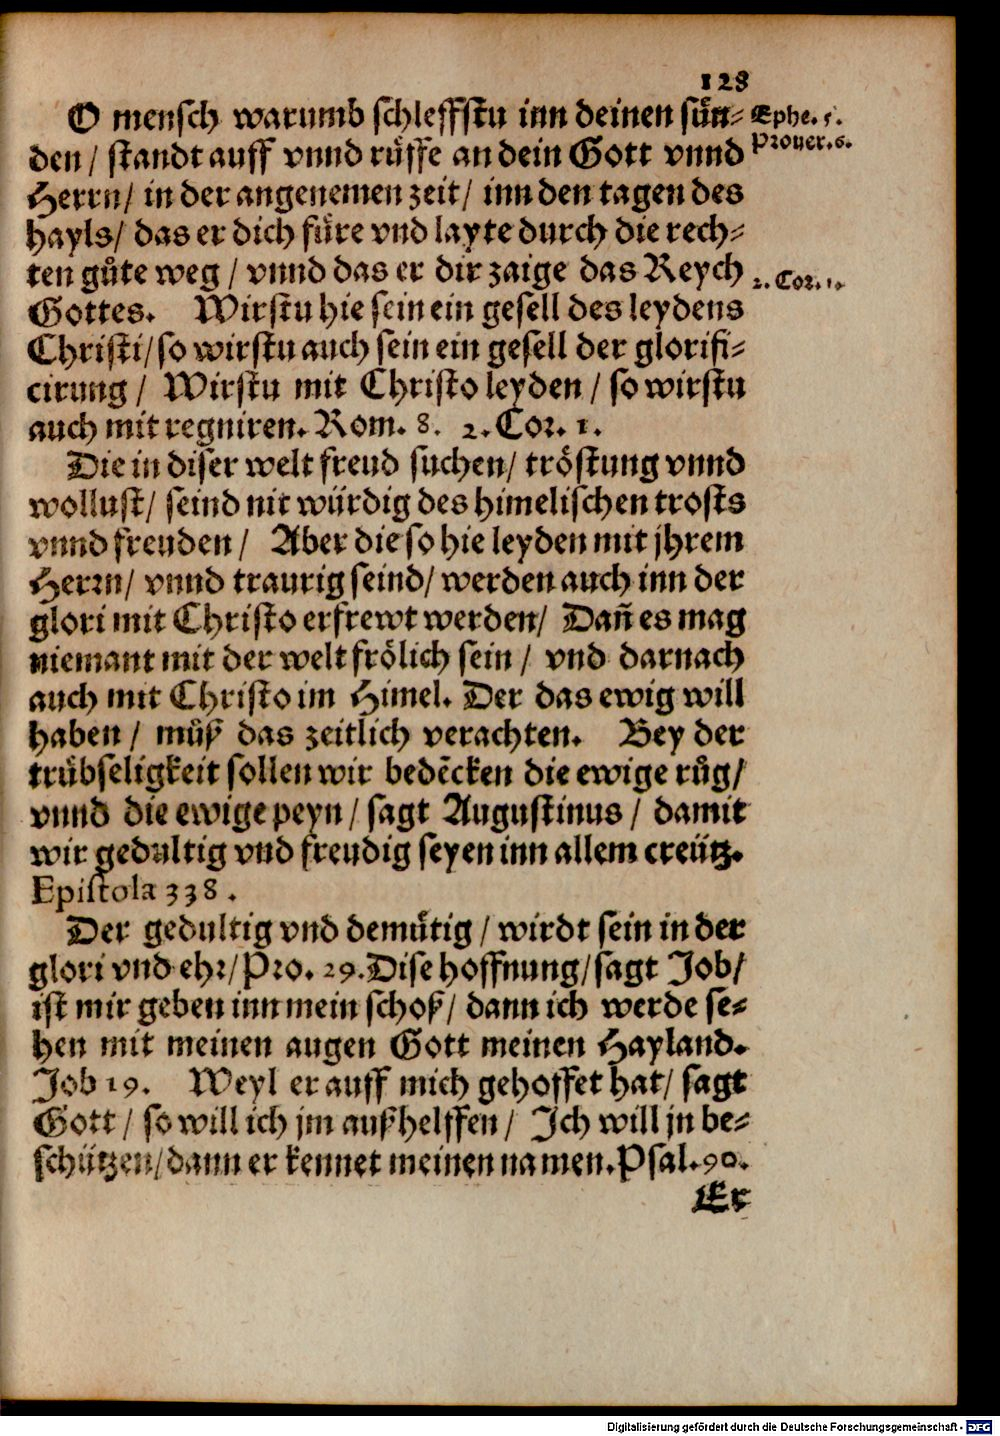 128
O mensch warumb schleffstu inn deinen sün-
Ephe. 5.
den / standt auff vnnd růffe an dein Gott vnnd
Prouer. 6.
Herrn / in der angenemen zeit / inn den tagen des
hayls / das er dich füre vnd layte durch die rech-
ten gůte weg / vnnd das er dir zaige das Reych
2. Cor. 1.
Gottes. Wirstu hie sein ein gesell des leydens
Christi / so wirstu auch sein ein gesell der glorifi-
cirung / Wirstu mit Christo leyden / so wirstu
auch mit regniren. Rom. 8. 2. Cor. 1.
Die in diser welt freud suchen / tröstung vnnd
wollust / seind nit würdig des himelischen trosts
vnnd freuden / Aber die so hie leyden mit jhrem
Herrn / vnnd traurig seind / werden auch inn der
glori mit Christo erfrewt werden / Dañ es mag
niemant mit der welt frölich sein / vnd darnach
auch mit Christo im Himel. Der das ewig will
haben / můß das zeitlich verachten. Bey der
trübseligkeit sollen wir bedēcken die ewige růg /
vnnd die ewige peyn / sagt Augustinus / damit
wir gedultig vnd freudig seyen inn allem creütz.
Epistola 338.
Der gedultig vnd demütig / wirdt sein in der
glori vnd ehr / Pro. 29. Dise hoffnung / sagt Job /
ist mir geben inn mein schoß / dann ich werde se-
hen mit meinen augen Gott meinen Hayland.
Job 19. Weyl er auff mich gehoffet hat / sagt
Gott / so will ich jm außhelffen / Ich will jn be-
schützen / dann er kennet meinen namen. Psal. 90.
Er
Digitalisierung gefördert durch die Deutsche Forschungsgemeinschaft - DFG